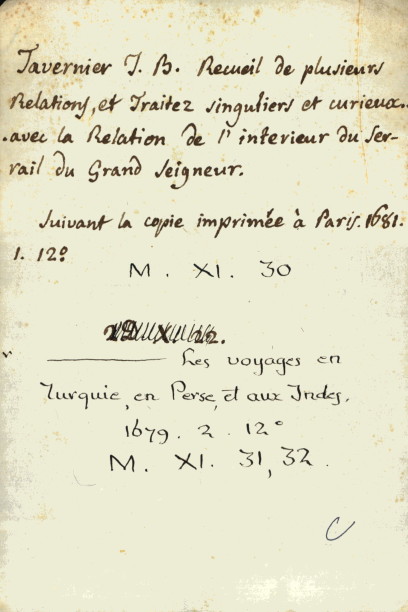 Tavernier J. B. Recueil de plusieurs
Relations, et Traitez singuliers et curieux..
.avec la Relation de l'interieur du Ser-
rail du Grand Seigneur.
Suivant la copie imprimée à Paris. 1681.
1. 12º
M. XI. 30
——— Les voyages en
Turquie, en Perse, et aux Indes.
1679. 2. 12º
M. XI. 31, 32.
C